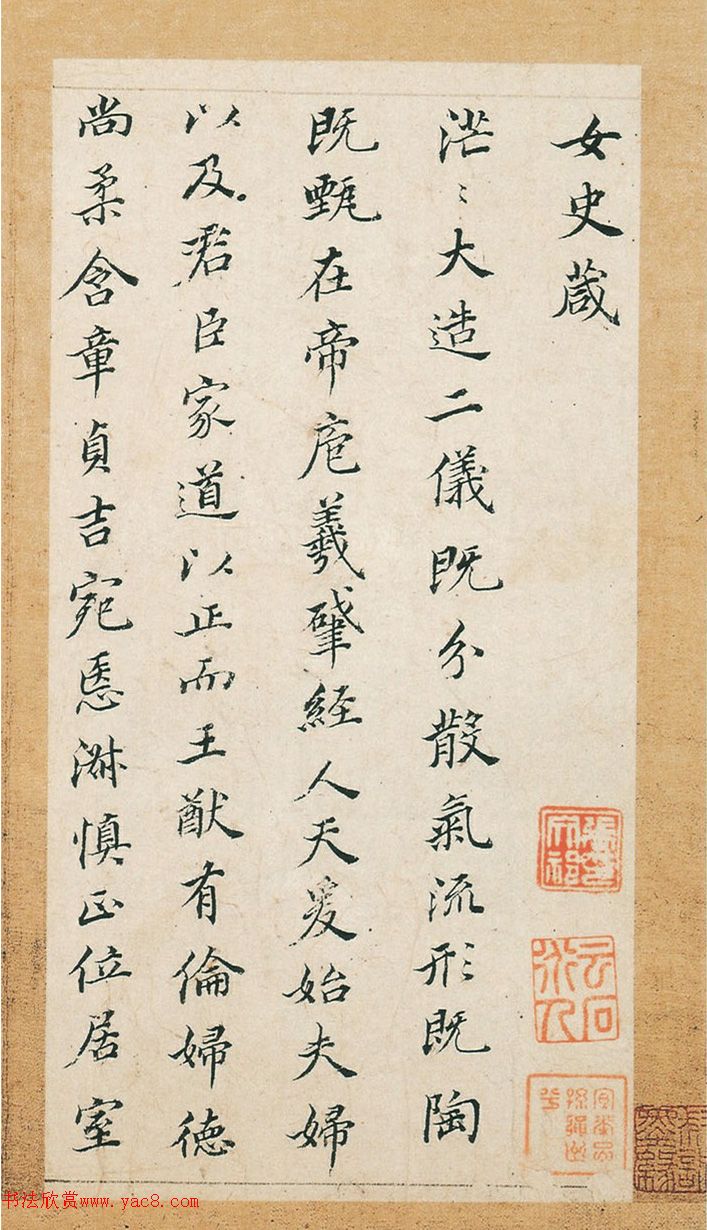 女史葴
茫〻大造二儀既分散氣流形既陶
既甄在帝庖羲肇経人天爰始夫婦
以及君臣家道以正而王猷有倫婦徳
尚柔含章貞吉宛淑慎正位居室
书法欣赏www.yac8.com